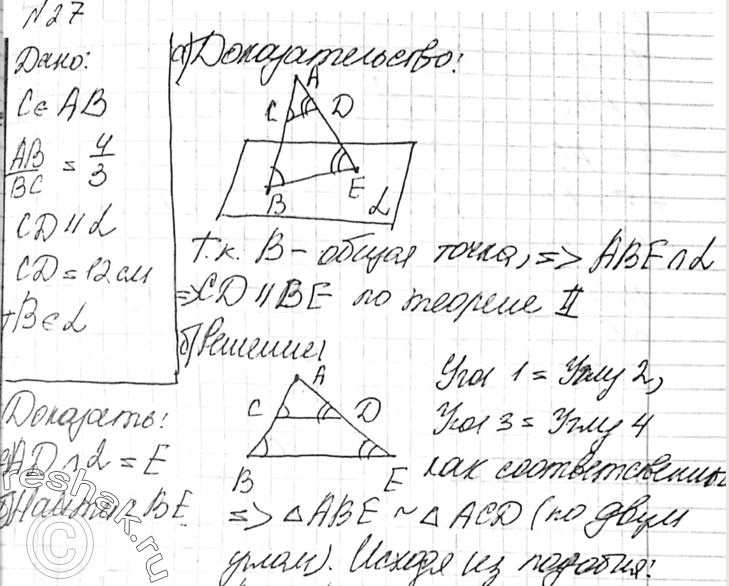 №27
Дано:
C∈AB
AB/BC = 4/3
CD∥α
CD=12см
B∈α
Доказать:
а) AD∩α=E
б) Найти BE
а) Доказательство:
A
C D
B E
α
Т.к. B – общая точка, => ABE∩α
=> CD∥BE по теореме II
б) Решение
A
C D
B E
Угол 1 = Углу 2,
Угол 3 = Углу 4
как соответственные
=> △ABE ~ △ACD (по двум
углам). Исходя из подобия:
©reshak.ru